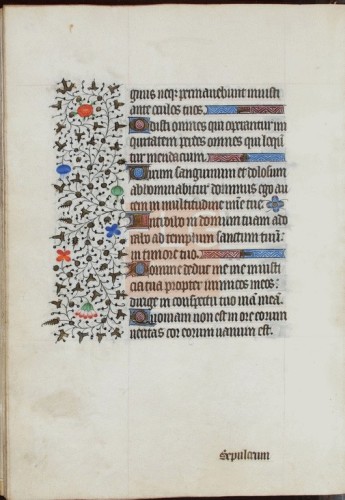 gnus neq; permanebunt iniusti
ante oculos tuos.
Odisti omnes qui operantur in
iquitatem perdes omnes qui loqũ
tur mendacium.
Uirum sanguinum et dolosum
abhominabitur dominus ego au
tem in multitudine mĩe tue.
Introibo in domum tuam ado
rabo ad templum sanctum tuũ
in timore tuo.
Domine deduc me in iusti
cia tua propter inimicos meos:
dirige in conspectu tuo uiã meã.
Quoniam non est in ore eorum
ueritas cor eorum uanum est.
Sepulcrum